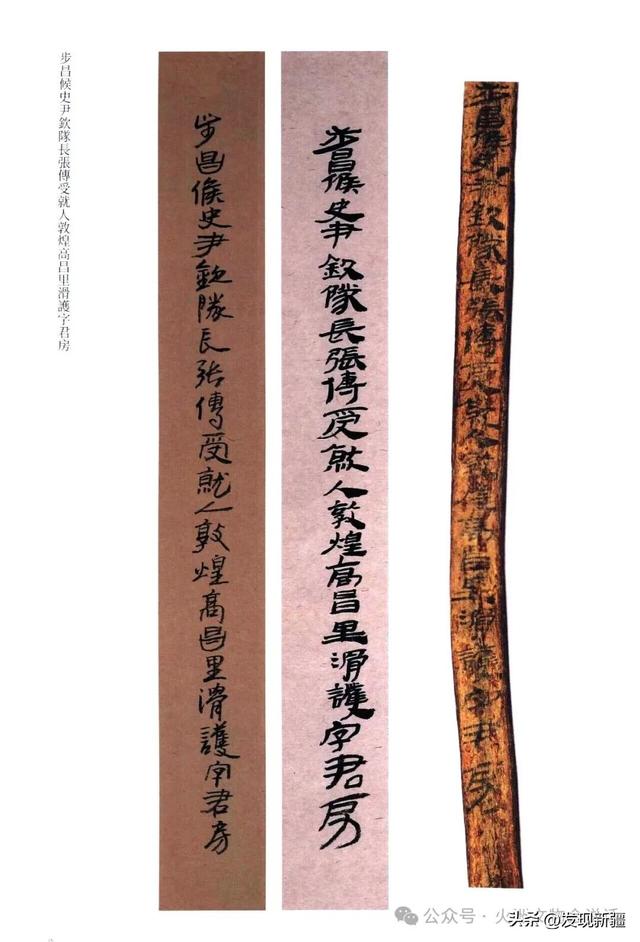 步昌候史尹欽隊長張傳受就人敦煌高昌里滑護字君房
步昌候史尹欽隊長張傳受就人敦煌高昌里滑護字君房
步昌候史尹欽隊長張傳受就人敦煌高昌里滑護字君房
步昌候史尹欽隊長張傳受就人敦煌高昌里滑護字君房
公众号·火
头条@发现新疆